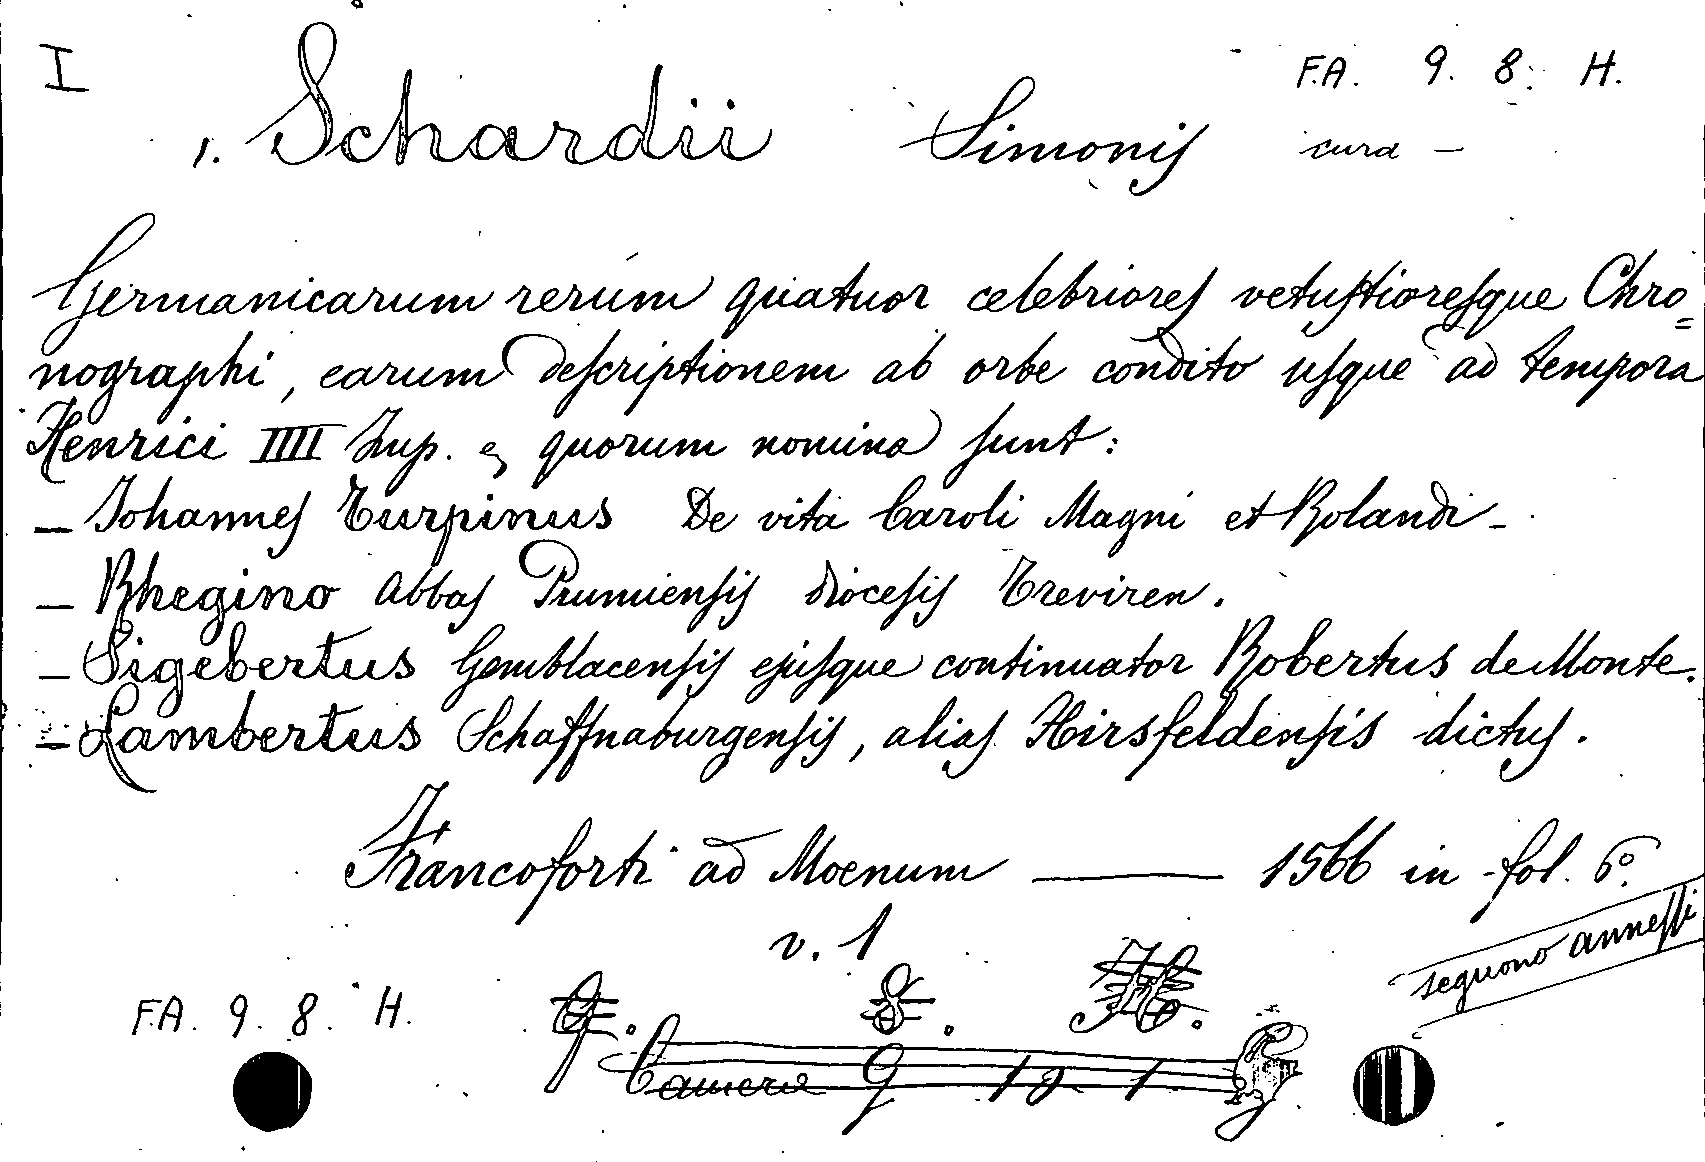 I F.A. 9. 8. H.
1. Schardii Simonis cura —
Germanicarum rerum quatuor celebriores vetustioresque Chro=
nographi, earum descriptionem ab orbe condito usque ad tempora
Henrici IIII Imp. quorum nomina sunt:
— Johannes Turpinus De vita Caroli Magni et Rolandi —
— Rhegino Abbas Prumiensis diocesis Treviren.
— Sigebertus Gemblacensis ejusque continuator Robertus de Monte.
— Lambertus Schaffnaburgensis, alias Hirsfeldensis dictus.
Francoforti ad Moenum —— 1566 in fol. 6°.
v. 1
seguono annessi
F.A. 9. 8. H. G. 8. H.
Camera 9